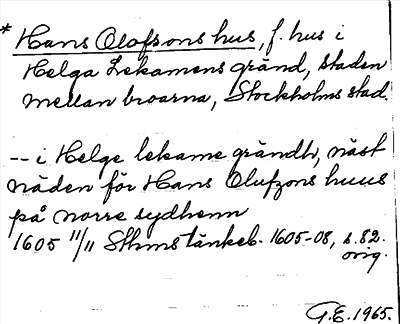 * Hans Olofsons hus, f. hus i
Helga Lekamens gränd, staden
mellan broarna, Stockholms stad.
-- i Helge lekame grändh, näst
näden för Hans Olufzons huus
på norre sydhenn
1605 11/11 Sthms tänkeb. 1605-08, s. 82.
orig.
G.E. 1965.